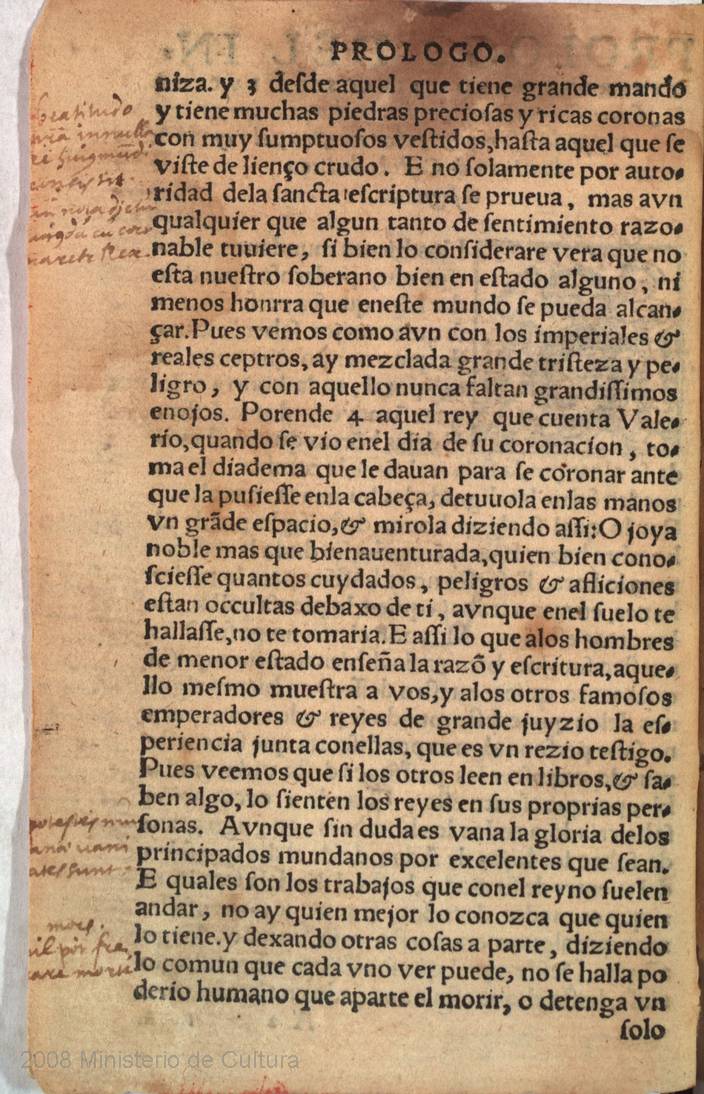 PROLOGO.
niza. y 3 desde aquel que tiene grande mando
y tiene muchas piedras preciosas y ricas coronas
con muy sumptuosos vestidos,hasta aquel que se
viste de lienço crudo. E no solamente por auto-
ridad dela sancta escriptura se prueua, mas avn
qualquier que algun tanto de sentimiento razo-
nable tuuiere, si bien lo considerare vera que no
esta nuestro soberano bien en estado alguno, ni
menos honrra que eneste mundo se pueda alcan-
çar.Pues vemos como avn con los imperiales &
reales ceptros, ay mezclada grande tristeza y pe-
ligro, y con aquello nunca faltan grandissimos
enojos. Porende 4 aquel rey que cuenta Vale-
rio,quando se vio enel dia de su coronacion, to-
ma el diadema que le dauan para se coronar ante
que la pusiesse enla cabeça, detuuola enlas manos
vn grãde espacio,& mirola diziendo assi:O joya
noble mas que bienauenturada,quien bien cono-
sciesse quantos cuydados, peligros & afliciones
estan occultas debaxo de ti, avnque enel suelo te
hallasse,no te tomaria.E assi lo que alos hombres
de menor estado enseña la razõ y escritura,aque-
llo mesmo muestra a vos,y alos otros famosos
emperadores & reyes de grande juyzio la es-
periencia junta conellas, que es vn rezio testigo.
Pues veemos que si los otros leen en libros,& sa-
ben algo, lo sienten los reyes en sus proprias per-
sonas. Avnque sin duda es vana la gloria delos
principados mundanos por excelentes que sean.
E quales son los trabajos que conel reyno suelen
andar, no ay quien mejor lo conozca que quien
lo tiene.y dexando otras cosas a parte, diziendo
lo comun que cada vno ver puede, no se halla po
derio humano que aparte el morir, o detenga vn
solo
2008 Ministerio de Cultura